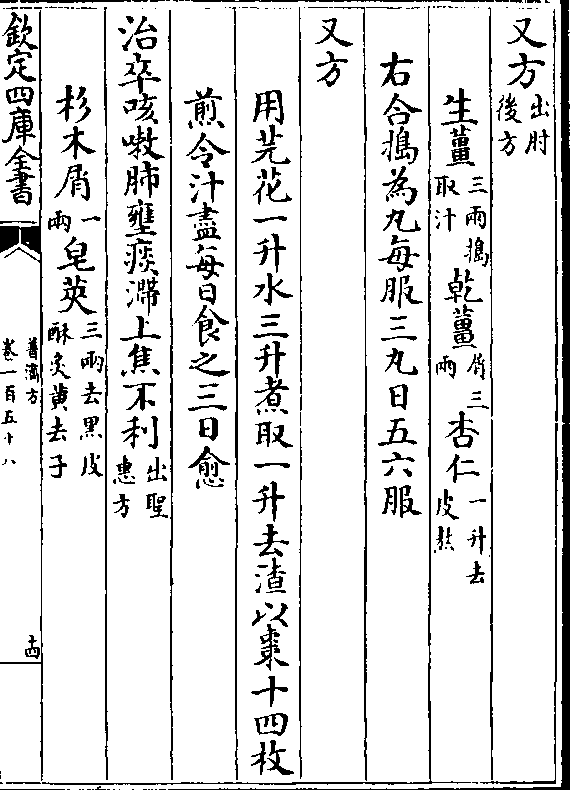 又方出肘後方
生薑三兩搗取汁乾薑屑三兩杏仁一升去皮熬
右合搗為丸每服三丸日五六服
又方
用芫花一升水三升煮取一升去渣以棗十四枚
煎令汁盡每日食之三日愈
治卒咳嗽肺壅痰滯上焦不利出聖惠方
杉木屑一兩皂莢三兩去黑皮酥炙黄去子
欽定四庫全書
普濟方
卷一百五十八
十四